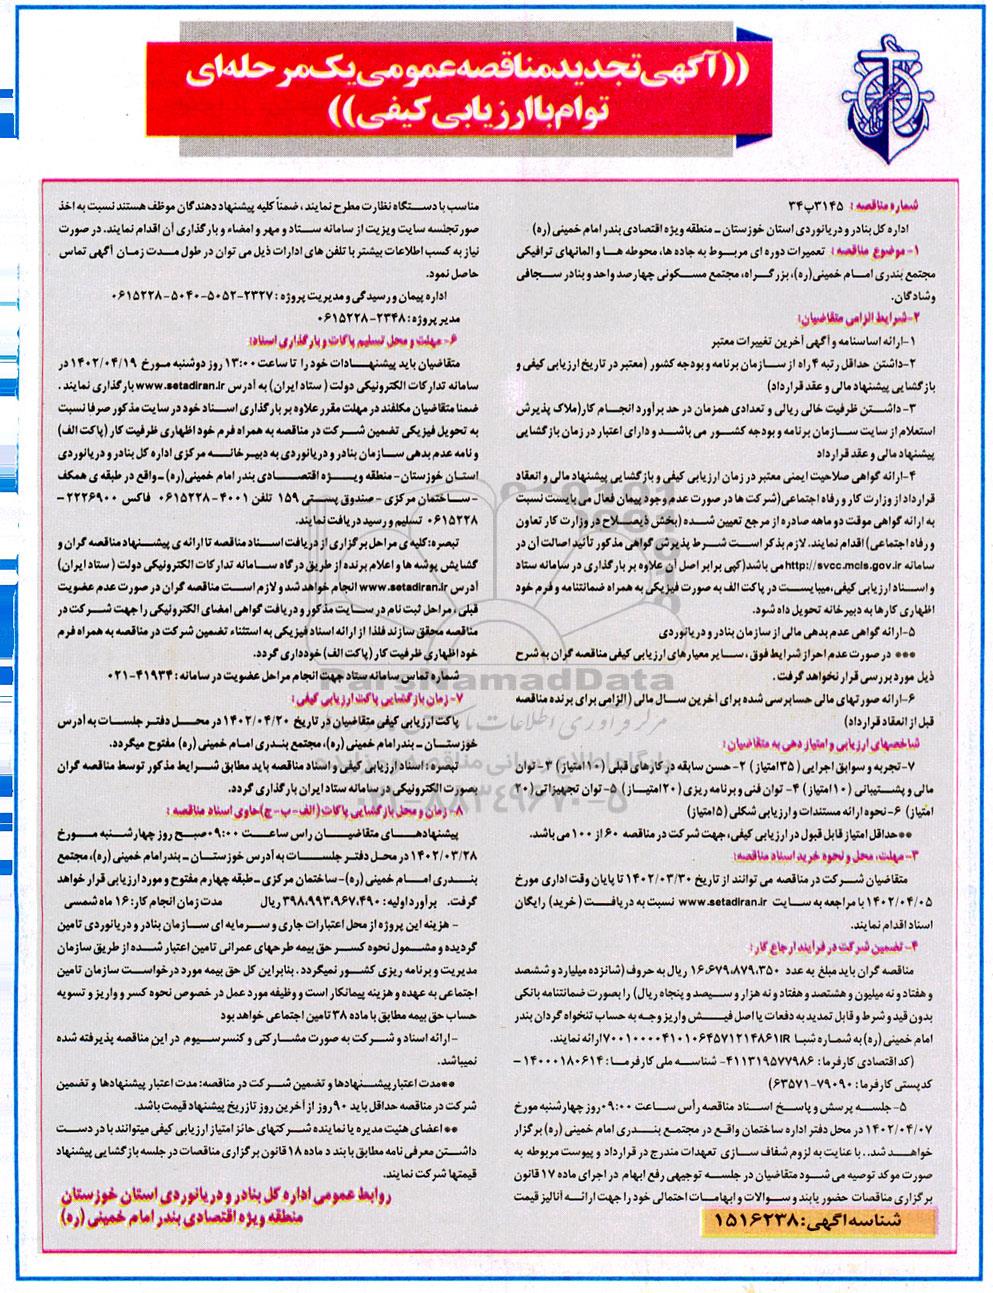 ((آگهی تجدید مناقصه عمومی یک مرحله‌ای
توام با ارزیابی کیفی))
شماره مناقصه: ۳۱۴۵پ۳۴
اداره کل بنادر و دریانوردی استان خوزستان ـ منطقه ویژه اقتصادی بندر امام خمینی (ره)
۱- موضوع مناقصه: تعمیرات دوره ای مربوط به جاده ها، محوطه ها و المانهای ترافیکی
مجتمع بندری امام خمینی(ره)، بزرگراه، مجتمع مسکونی چهارصد واحد و بنادر سجافی
و شادگان.
۲-شرایط الزامی متقاضیان:
۱-ارائه اساسنامه و آگهی آخرین تغییرات معتبر
۲-داشتن حداقل رتبه ۴ راه از سازمان برنامه و بودجه کشور (معتبر در تاریخ ارزیابی کیفی و
بازگشایی پیشنهاد مالی و عقد قرارداد)
۳-داشتن ظرفیت خالی ریالی و تعدادی همزمان در حد برآورد انجام کار(ملاک پذیرش
استعلام از سایت سازمان برنامه و بودجه کشور می باشد و دارای اعتبار در زمان بازگشایی
پیشنهاد مالی و عقد قرارداد
۴-ارائه گواهی صلاحیت ایمنی معتبر در زمان ارزیابی کیفی و بازگشایی پیشنهاد مالی و انعقاد
قرارداد از وزارت کار و رفاه اجتماعی(شرکت ها در صورت عدم وجود پیمان فعال می بایست نسبت
به ارائه گواهی موقت دو ماهه صادره از مرجع تعیین شده (بخش ذیصلاح در وزارت کار تعاون
و رفاه اجتماعی) اقدام نمایند. لازم بذکر است شرط پذیرش گواهی مذکور تأئید اصالت آن در
سامانه http://svcc.mcls.gov.ir می باشد(کپی برابر اصل آن علاوه بر بارگذاری در سامانه ستاد
و اسناد ارزیابی کیفی، میبایست در پاکت الف به صورت فیزیکی به همراه ضمانتنامه و فرم خود
اظهاری کارها به دبیرخانه تحویل داده شود.
۵-ارائه گواهی عدم بدهی مالی از سازمان بنادر و دریانوردی
*** در صورت عدم احراز شرایط فوق، سایر معیارهای ارزیابی کیفی مناقصه گران به شرح
ذیل مورد بررسی قرار نخواهد گرفت.
۶-ارائه صورتهای مالی حسابرسی شده برای آخرین سال مالی (الزامی برای برنده مناقصه
قبل از انعقاد قرارداد)
شاخصهای ارزیابی و امتیازدهی به متقاضیان:
۷-تجربه و سوابق اجرایی (۳۵امتیاز) ۲-حسن سابقه در کارهای قبلی (۱۰امتیاز) ۳-توان
مالی و پشتیبانی (۱۰امتیاز) ۴- توان فنی و برنامه ریزی (۲۰امتیاز) ۵-توان تجهیزاتی(۲۰
امتیاز) ۶-نحوه ارائه مستندات و ارزیابی شکلی (۵امتیاز)
**حداقل امتیاز قابل قبول در ارزیابی کیفی، جهت شرکت در مناقصه ۶۰ از ۱۰۰ می باشد.
۳-مهلت، محل و نحوه خرید اسناد مناقصه:
متقاضیان شرکت در مناقصه می توانند از تاریخ ۱۴۰۲/۰۳/۳۰ تا پایان وقت اداری مورخ
۱۴۰۲/۰۴/۰۵ با مراجعه به سایت www.setadiran.ir نسبت به دریافت (خرید) رایگان
اسناد اقدام نمایند.
۴- تضمین شرکت در فرآیند ارجاع کار:
مناقصه گران باید مبلغ به عدد ۱۶،۶۷۹،۸۷۹،۳۵۰ ریال به حروف (شانزده میلیارد و ششصد
و هفتاد و نه میلیون و هشتصد و هفتاد و نه هزار و سیصد و پنجاه ریال) را بصورت ضمانتنامه بانکی
بدون قید و شرط و قابل تمدید به دفعات یا اصل فیش واریز وجه به حساب تنخواه گردان بندر
امام خمینی (ره) به شماره شبا IR۷۰۰۱۰۰۰۰۴۱۰۱۰۶۴۵۷۱۲۱۴۸۶۱ ارائه نمایند.
(کد اقتصادی کارفرما: ۴۱۱۳۱۹۵۷۷۹۸۶- شناسه ملی کارفرما: ۱۴۰۰۰۱۸۰۶۱۴ -
کدپستی کارفرما: ۷۹۰۹۰-۶۳۵۷۱)
۵- جلسه پرسش و پاسخ اسناد مناقصه رأس ساعت ۰۹:۰۰ روز چهارشنبه مورخ
۱۴۰۲/۰۴/۰۷ در محل دفتر اداره ساختمان واقع در مجتمع بندری امام خمینی (ره) برگزار
خواهد شد..با عنایت به لزوم شفاف سازی تعهدات مندرج در قرارداد و پیوست مربوطه به
صورت موکد توصیه می شود متقاضیان در جلسه توجیهی رفع ابهام در اجرای ماده ۱۷ قانون
برگزاری مناقصات حضور یابند و سوالات و ابهامات احتمالی خود را جهت ارائه آنالیز قیمت
شناسه آگهی: ۱۵۱۶۲۳۸
مناسب با دستگاه نظارت مطرح نمایند، ضمناً کلیه پیشنهاد دهندگان موظف هستند نسبت به اخذ
صورتجلسه سایت ویزیت از سامانه ستاد و مهر و امضاء و بارگذاری آن اقدام نمایند. در صورت
نیاز به کسب اطلاعات بیشتر با تلفن های ادارات ذیل می توان در طول مدت زمان آگهی تماس
حاصل نمود.
اداره پیمان و رسیدگی و مدیریت پروژه: ۲۳۲۷-۵۰۵۲-۵۰۴۰-۰۶۱۵۲۲۸
مدیر پروژه: ۲۳۴۸-۰۶۱۵۲۲۸
۶- مهلت و محل تسلیم پاکات و بارگذاری اسناد:
متقاضیان باید پیشنهادات خود را تا ساعت ۱۳:۰۰ روز دوشنبه مورخ ۱۴۰۲/۰۴/۱۹ در
سامانه تدارکات الکترونیکی دولت (ستاد ایران) به آدرس www.setadiran.ir بارگذاری نمایند.
ضمنا متقاضیان مکلفند در مهلت مقرر علاوه بر بارگذاری اسناد خود در سایت مذکور صرفا نسبت
به تحویل فیزیکی تضمین شرکت در مناقصه به همراه فرم خود اظهاری ظرفیت کار (پاکت الف)
و نامه عدم بدهی سازمان بنادر و دریانوردی به دبیرخانه مرکزی اداره کل بنادر و دریانوردی
استان خوزستان- منطقه ویژه اقتصادی بندر امام خمینی(ره) ـ واقع در طبقه ی همکف
- ساختمان مرکزی - صندوق پستی ۱۵۹ تلفن ۴۰۰۱-۰۶۱۵۲۲۸ فاکس ۲۲۲۶۹۰۰ -
۰۶۱۵۲۲۸ تسلیم و رسید دریافت نمایند.
تبصره:کلیه ی مراحل برگزاری از دریافت اسناد مناقصه تا ارائه ی پیشنهاد مناقصه گران و
گشایش پوشه ها و اعلام برنده از طریق درگاه سامانه تدارکات الکترونیکی دولت (ستاد ایران)
آدرس www.setadiran.ir انجام خواهد شد و لازم است مناقصه گران در صورت عدم عضویت
قبلی، مراحل ثبت نام در سایت مذکور و دریافت گواهی امضای الکترونیکی را جهت شرکت در
مناقصه محقق سازند فلذا از ارائه اسناد فیزیکی به استثناء تضمین شرکت در مناقصه به همراه فرم
خود اظهاری ظرفیت کار (پاکت الف) خودداری گردد.
شماره تماس سامانه ستاد جهت انجام مراحل عضویت در سامانه: ۴۱۹۳۴-۰۲۱
۷- زمان بازگشایی پاکت ارزیابی کیفی:
پاکت ارزیابی کیفی متقاضیان در تاریخ ۱۴۰۲/۰۴/۲۰ در محل دفتر جلسات به آدرس
خوزستان ـ بندر امام خمینی (ره)، مجتمع بندری امام خمینی (ره) مفتوح میگردد.
تبصره: اسناد ارزیابی کیفی و اسناد مناقصه باید مطابق شرایط مذکور توسط مناقصه گران
بصورت الکترونیکی در سامانه ستاد ایران بارگذاری گردد.
۸- زمان و محل بازگشایی پاکات (الف-ب-ج)حاوی اسناد مناقصه:
پیشنهادهای متقاضیان راس ساعت ۰۹:۰۰صبح روز چهارشنبه مورخ
۱۴۰۲/۰۳/۲۸ در محل دفتر جلسات به آدرس خوزستان ـ بندر امام خمینی (ره)، مجتمع
بندری امام خمینی (ره)- ساختمان مرکزی ـ طبقه چهارم مفتوح و مورد ارزیابی قرار خواهد
گرفت. برآورد اولیه: ۳۹۸،۹۹۳،۹۶۷،۴۹۰ ریال مدت زمان انجام کار: ۱۶ ماه شمسی
- هزینه این پروژه از محل اعتبارات جاری و سرمایه ای سازمان بنادر و دریانوردی تامین
گردیده و مشمول نحوه کسر حق بیمه طرحهای عمرانی تامین اعتبار شده از طریق سازمان
مدیریت و برنامه ریزی کشور نمیگردد. بنابراین کل حق بیمه مورد درخواست سازمان تامین
اجتماعی به عهده و هزینه پیمانکار است و وظیفه مورد عمل در خصوص نحوه کسر و واریز و تسویه
حساب حق بیمه مطابق با ماده ۳۸ تامین اجتماعی خواهد بود
-ارائه اسناد و شرکت به صورت مشارکتی و کنسرسیوم در این مناقصه پذیرفته شده
نمیباشد.
**مدت اعتبار پیشنهادها و تضمین شرکت در مناقصه: مدت اعتبار پیشنهادها و تضمین
شرکت در مناقصه حداقل باید ۹۰ روز از آخرین روز تاریخ پیشنهاد قیمت باشد.
** اعضای هئیت مدیره یا نماینده شرکتهای حائز امتیاز ارزیابی کیفی میتوانند با در دست
داشتن معرفی نامه مطابق با بند د ماده ۱۸ قانون برگزاری مناقصات در جلسه بازگشایی پیشنهاد
قیمتها شرکت نمایند.
روابط عمومی اداره کل بنادر و دریانوردی استان خوزستان
منطقه ویژه اقتصادی بندر امام خمینی (ره)
ParsNamadData